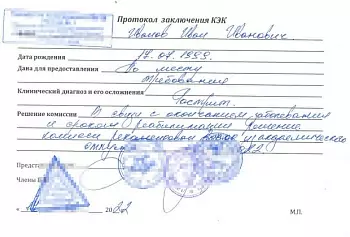 Протокол заключения КЭК
Иванов Иван Иванович.
Дата рождения 17.07.1999.
Дана для предоставления По месту
требования
Клинический диагноз и его осложнения
Гастрит.
Решение комиссии В связи с окончанием заболевания
и сроком реабилитации решение
комиссии
выход
Предст
Члены
20 22
М.П.